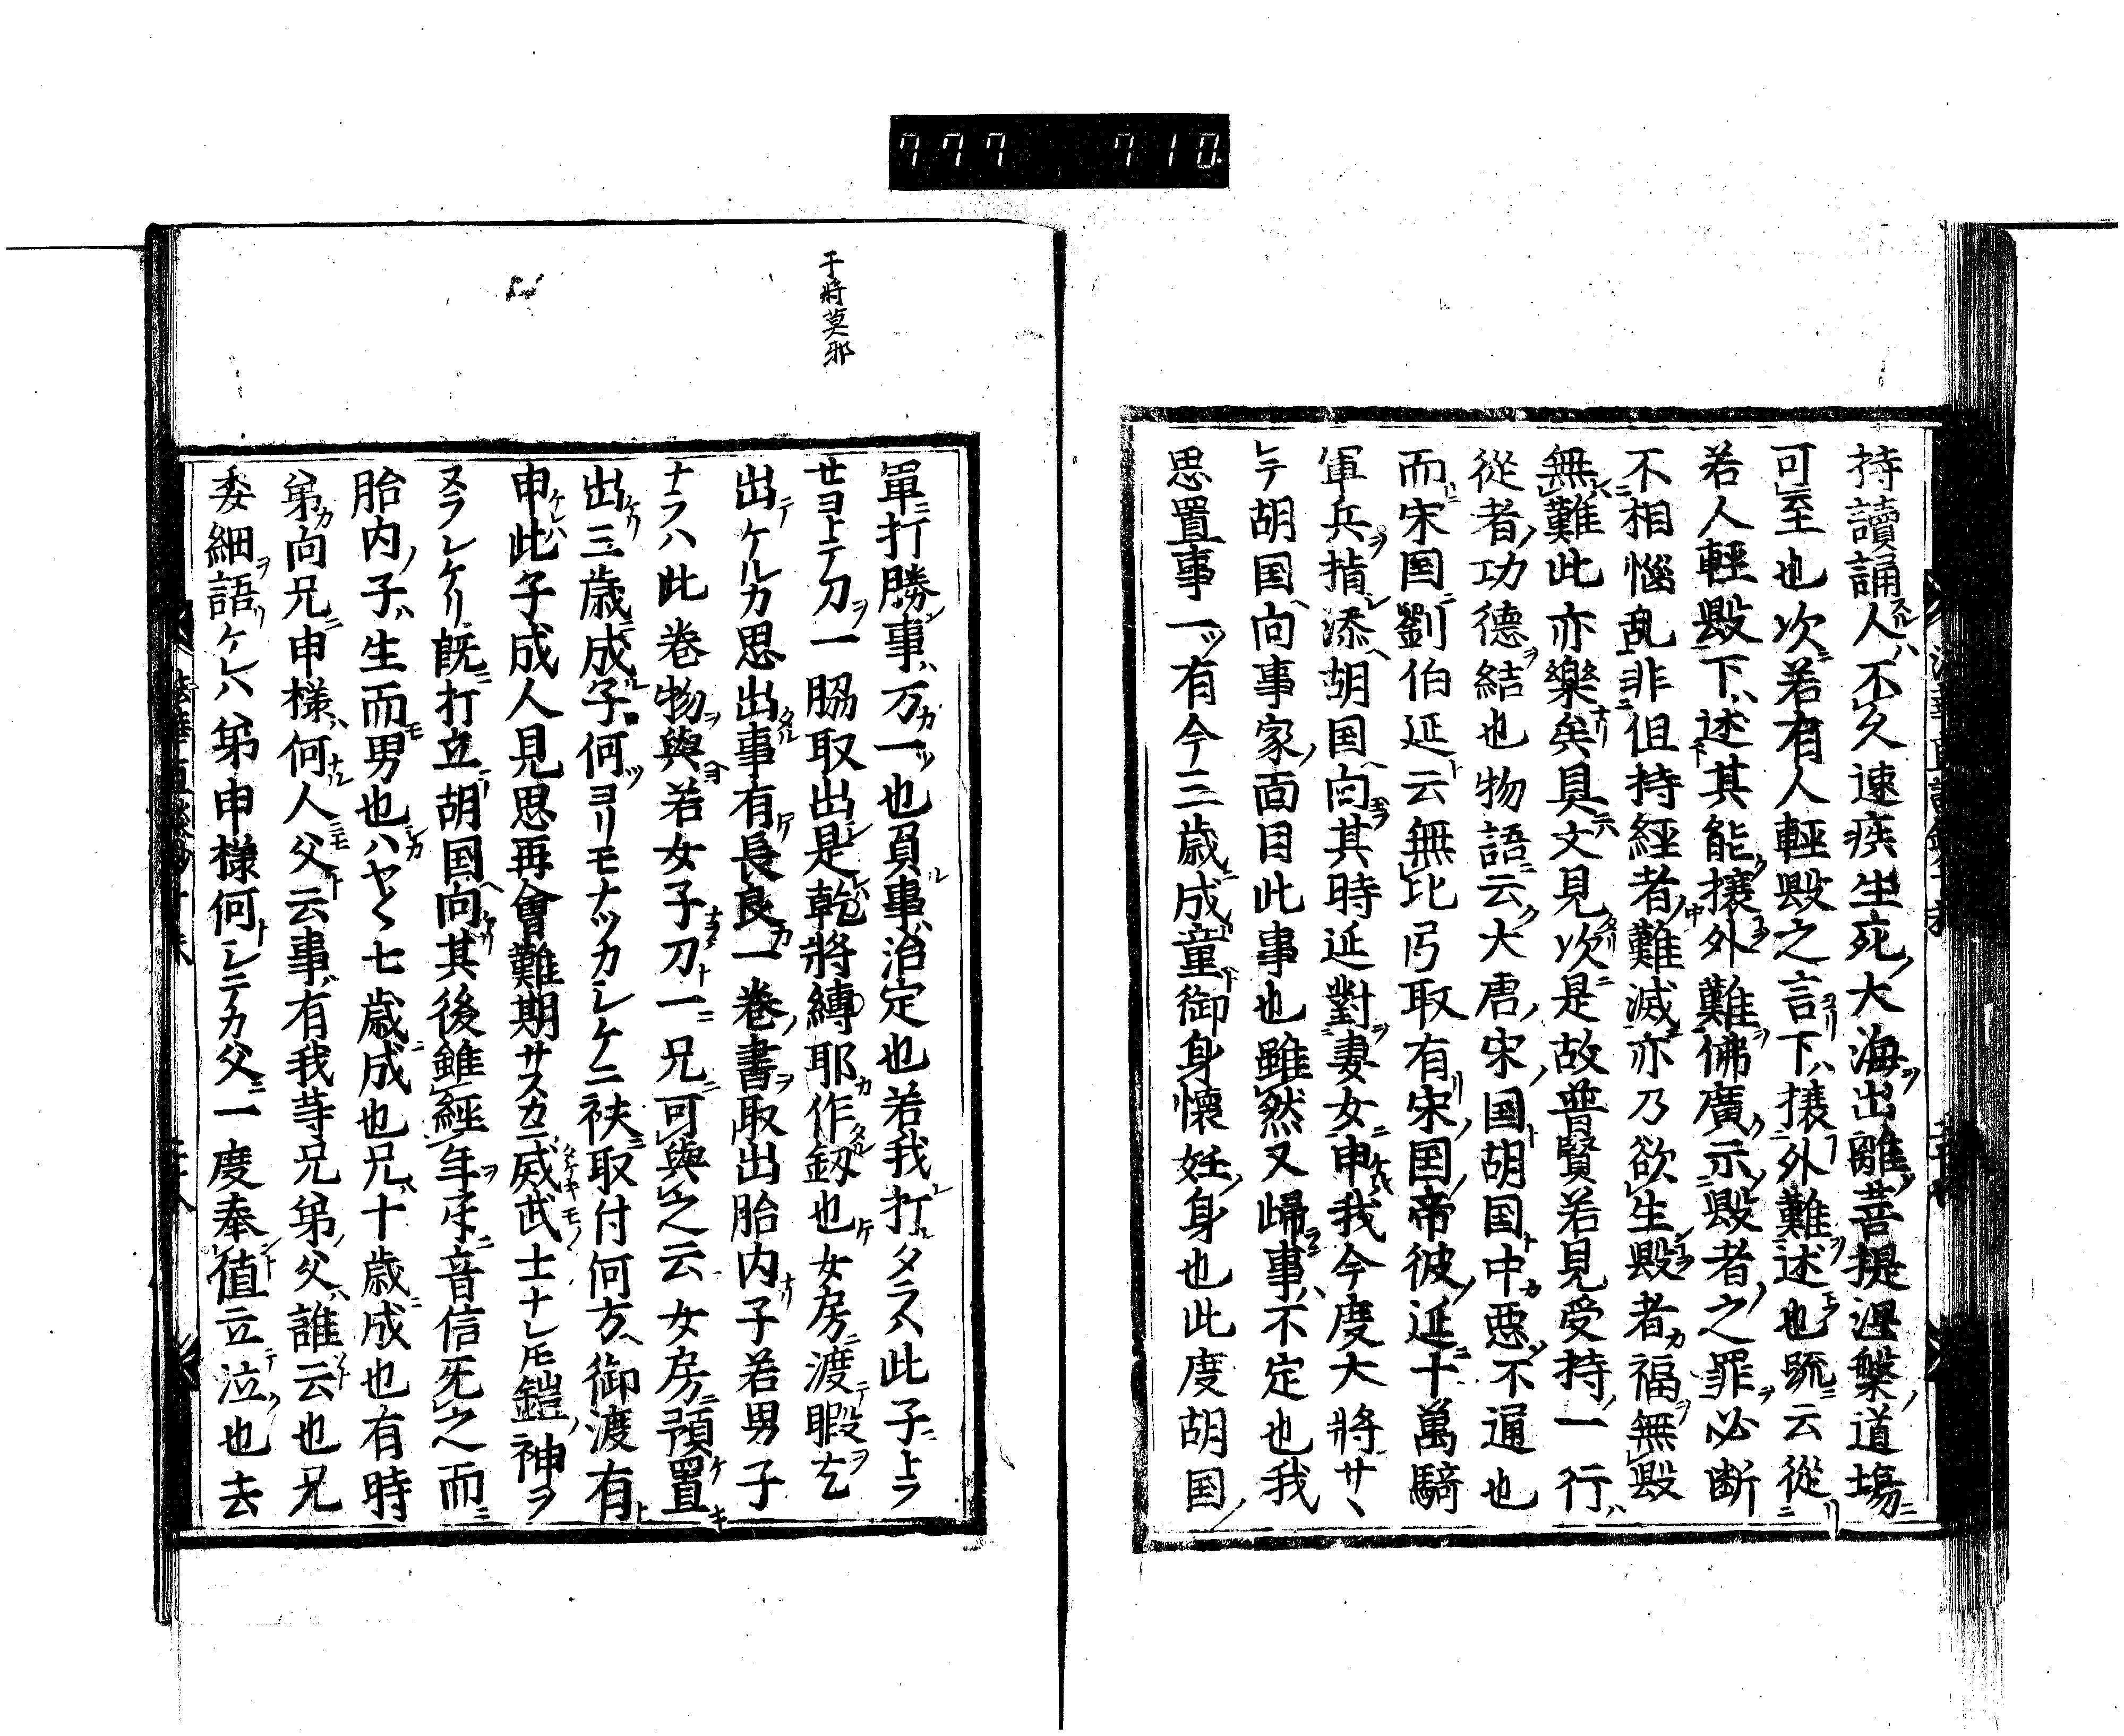 777 710.
持讀誦人不久速疾生死大海出離菩提涅槃道場
可至也次若有人輕毀之言下攘外難述也䟽云從
若人輕毀下述其能攘外難佛廣示毀者之罪必断
不相惱乱非但持經者難滅亦乃欲生毀者福無毀
無難此亦樂矣具文見次是故普賢若見受持一行
從者功德結也物語云大唐宋国胡国中悪不通也
而宋国劉伯延云無比弓取有宋国帝彼延十萬騎
軍兵指添胡国向其時延對妻女申我今度大將サヽ
レテ胡国向事家面目此事也雖然又歸事不定也我
思置事一有今三歳成童御身懐妊身也此度胡国
干將莫邪
軍打勝事万一也負事治定也若我打タラハ此子トラ
せヨトテ刀一脇取出是乾將縳耶作釼也女房渡暇乞
出ケルカ思出事有長良一巻書取出胎内子若男子
ナラハ此巻物與若女子刀一兄可與之云女房預置
出三歳成子何ヨリモナツカシケニ袂取付何方御渡有
申此子成人見思再會難期サスカニ威武士ナレ𪜈鎧神ヲ
ヌラシケリ既打立胡国向其後雖經年序音信死之而
胎内子生而男也ハヤ〱七歳成也兄十歳成也有時
弟向兄申樣何人父云事有我等兄弟父誰云也兄
委細語ケレハ弟申様何トシテカ父一度奉値立泣也去